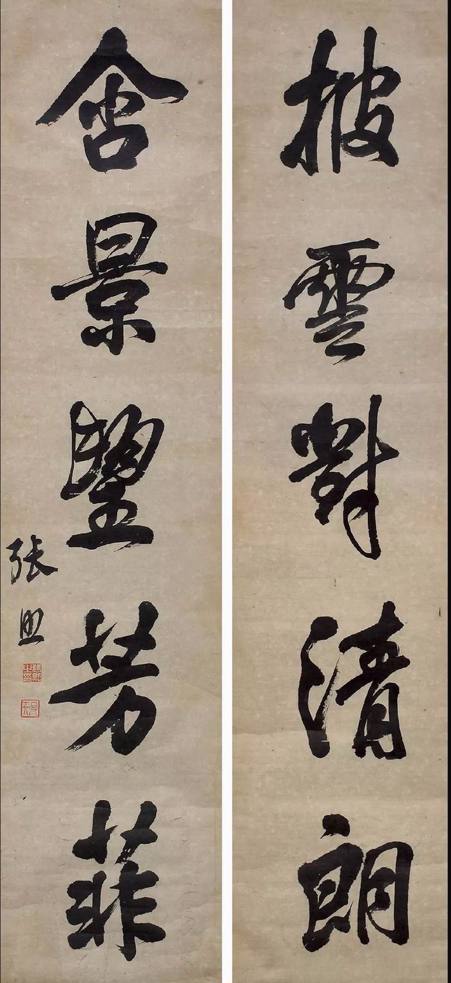 披雲對清朗
含景朢芳菲
張照